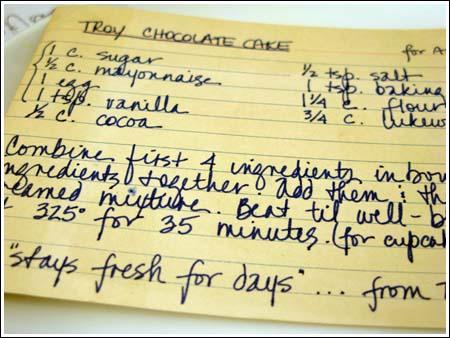 TROY CHOCOLATE CAKE for A
1 c. sugar ½ tsp. salt
½ c. mayonnaise 1 tsp. baking
1 egg 1¼ c. flour
1 tsp. vanilla 3/4 c. lukew
½ c. cocoa
Combine first 4 ingredients in bow
ngredients together. Add them & th
reamed mixture. Beat til well-b
325° for 35 minutes. (for cupca
"stays fresh for days" ... from T